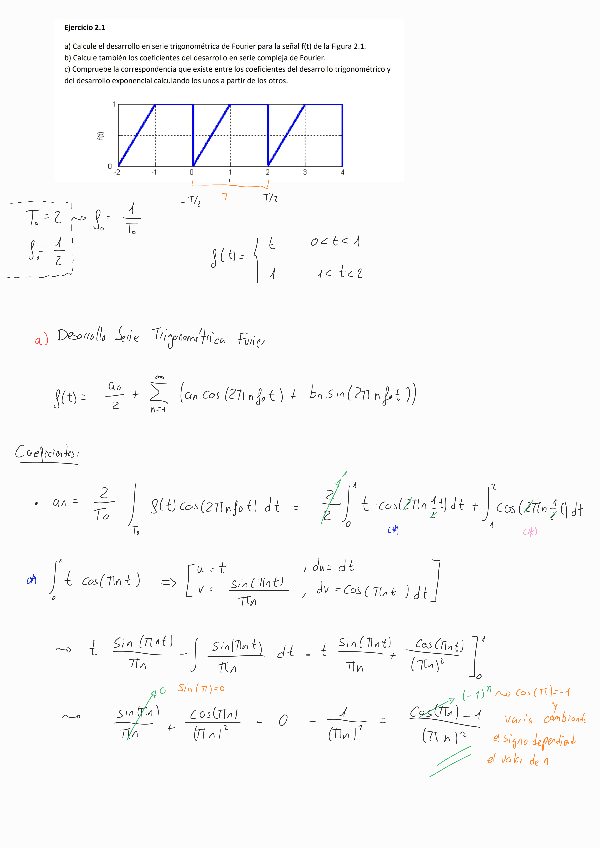 Ejercicio 2.1
a) Calcule el desarrollo en serie trigonométrica de Fourier para la señal f(t) de la Figura 2.1.
b) Calcule también los coeficientes del desarrollo en serie compleja de Fourier.
c) Compruebe la correspondencia que existe entre los coeficientes del desarrollo trigonométrico y
del desarrollo exponencial calculando los unos a partir de los otros.
1
f(t)
0
-2 -1 0 1 2 3 4
-T/2 T T/2
T₀ = 2 ⇝ f₀ = 1/T₀
f₀ = 1/2
f(t) = { t 0<t<1
1 1<t<2
a) Desarrollo Serie Trigonométrica Fourier
f(t) = a₀/2 + ∑_{n=1}^{∞} (an cos(2πnf₀t) + bn sin(2πnf₀t))
Coeficientes:
• an = 2/T₀ ∫_{T₀} f(t) cos(2πnf₀t) dt = 2/2 ∫₀¹ t cos(2πn 1/2 t) dt + ∫₁² cos(2πn 1/2 t) dt
(*) (*)
(*) ∫₀¹ t cos(πnt) ⇒ [ u = t , du = dt
v = sin(πnt)/πn , dv = cos(πnt) dt ]
⇝ t sin(πnt)/πn - ∫ sin(πnt)/πn dt = t sin(πnt)/πn + cos(πnt)/(πn)² ]₀¹
⇝ sin(πn)/πn + cos(πn)/(πn)² - 0 - 1/(πn)² = cos(πn) - 1/(πn)²
0 sin(π)=0
(-1)ⁿ ⇝ cos(π)=-1
y
varia cambiando
el signo dependiendo
el valor de n